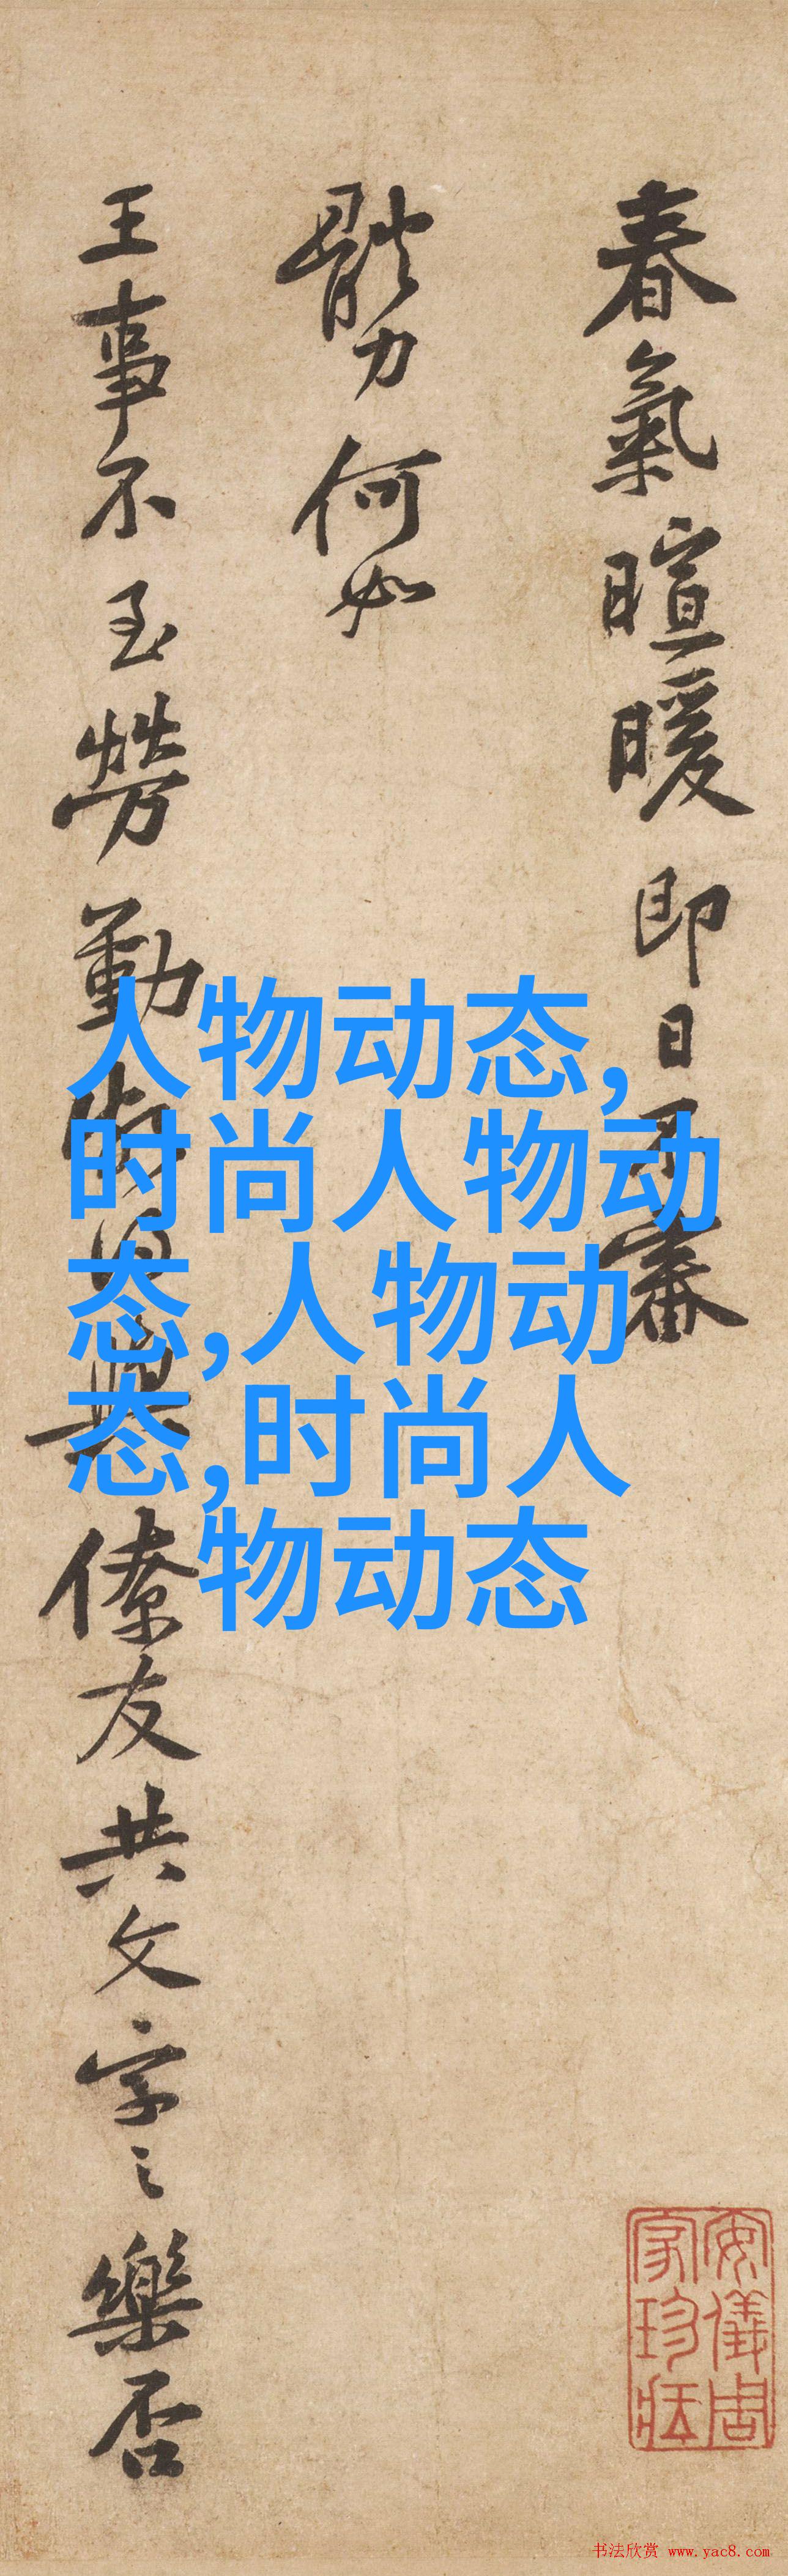 春氣暄暖即日不審
體力何如
王事不至勞勤與僚友共文字之樂否
人物动态,
时尚人物动
态,人物动
态,时尚人
物动态
安儀周
家珍藏
书法欣赏 www.yac8.com